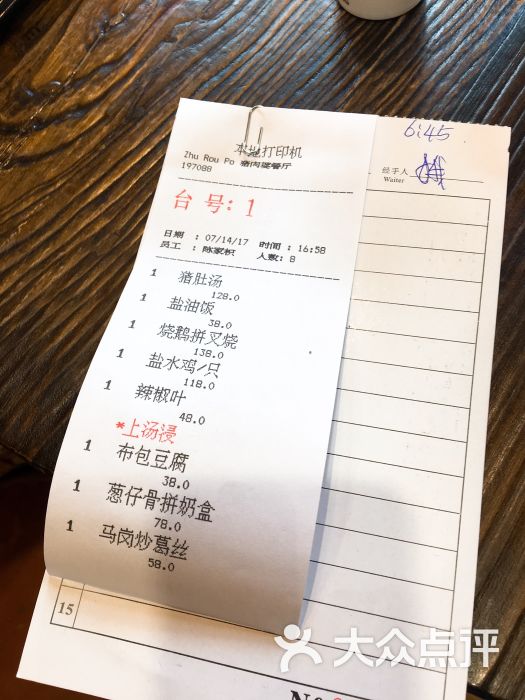 6:45
经手人
Waiter
本地打印机
Zhu Rou Po 猪肉婆餐厅
197088
台号: 1
日期 : 07/14/17 时间 : 16:58
员工 : 陈家帜 人数: 8
1 猪肚汤
128.0
1 盐油饭
38.0
1 烧鹅拼叉烧
138.0
1 盐水鸡/只
118.0
1 辣椒叶
48.0
*上汤浸
1 布包豆腐
38.0
1 葱仔骨拼奶盒
78.0
1 马岗炒葛丝
58.0
15
大众点评